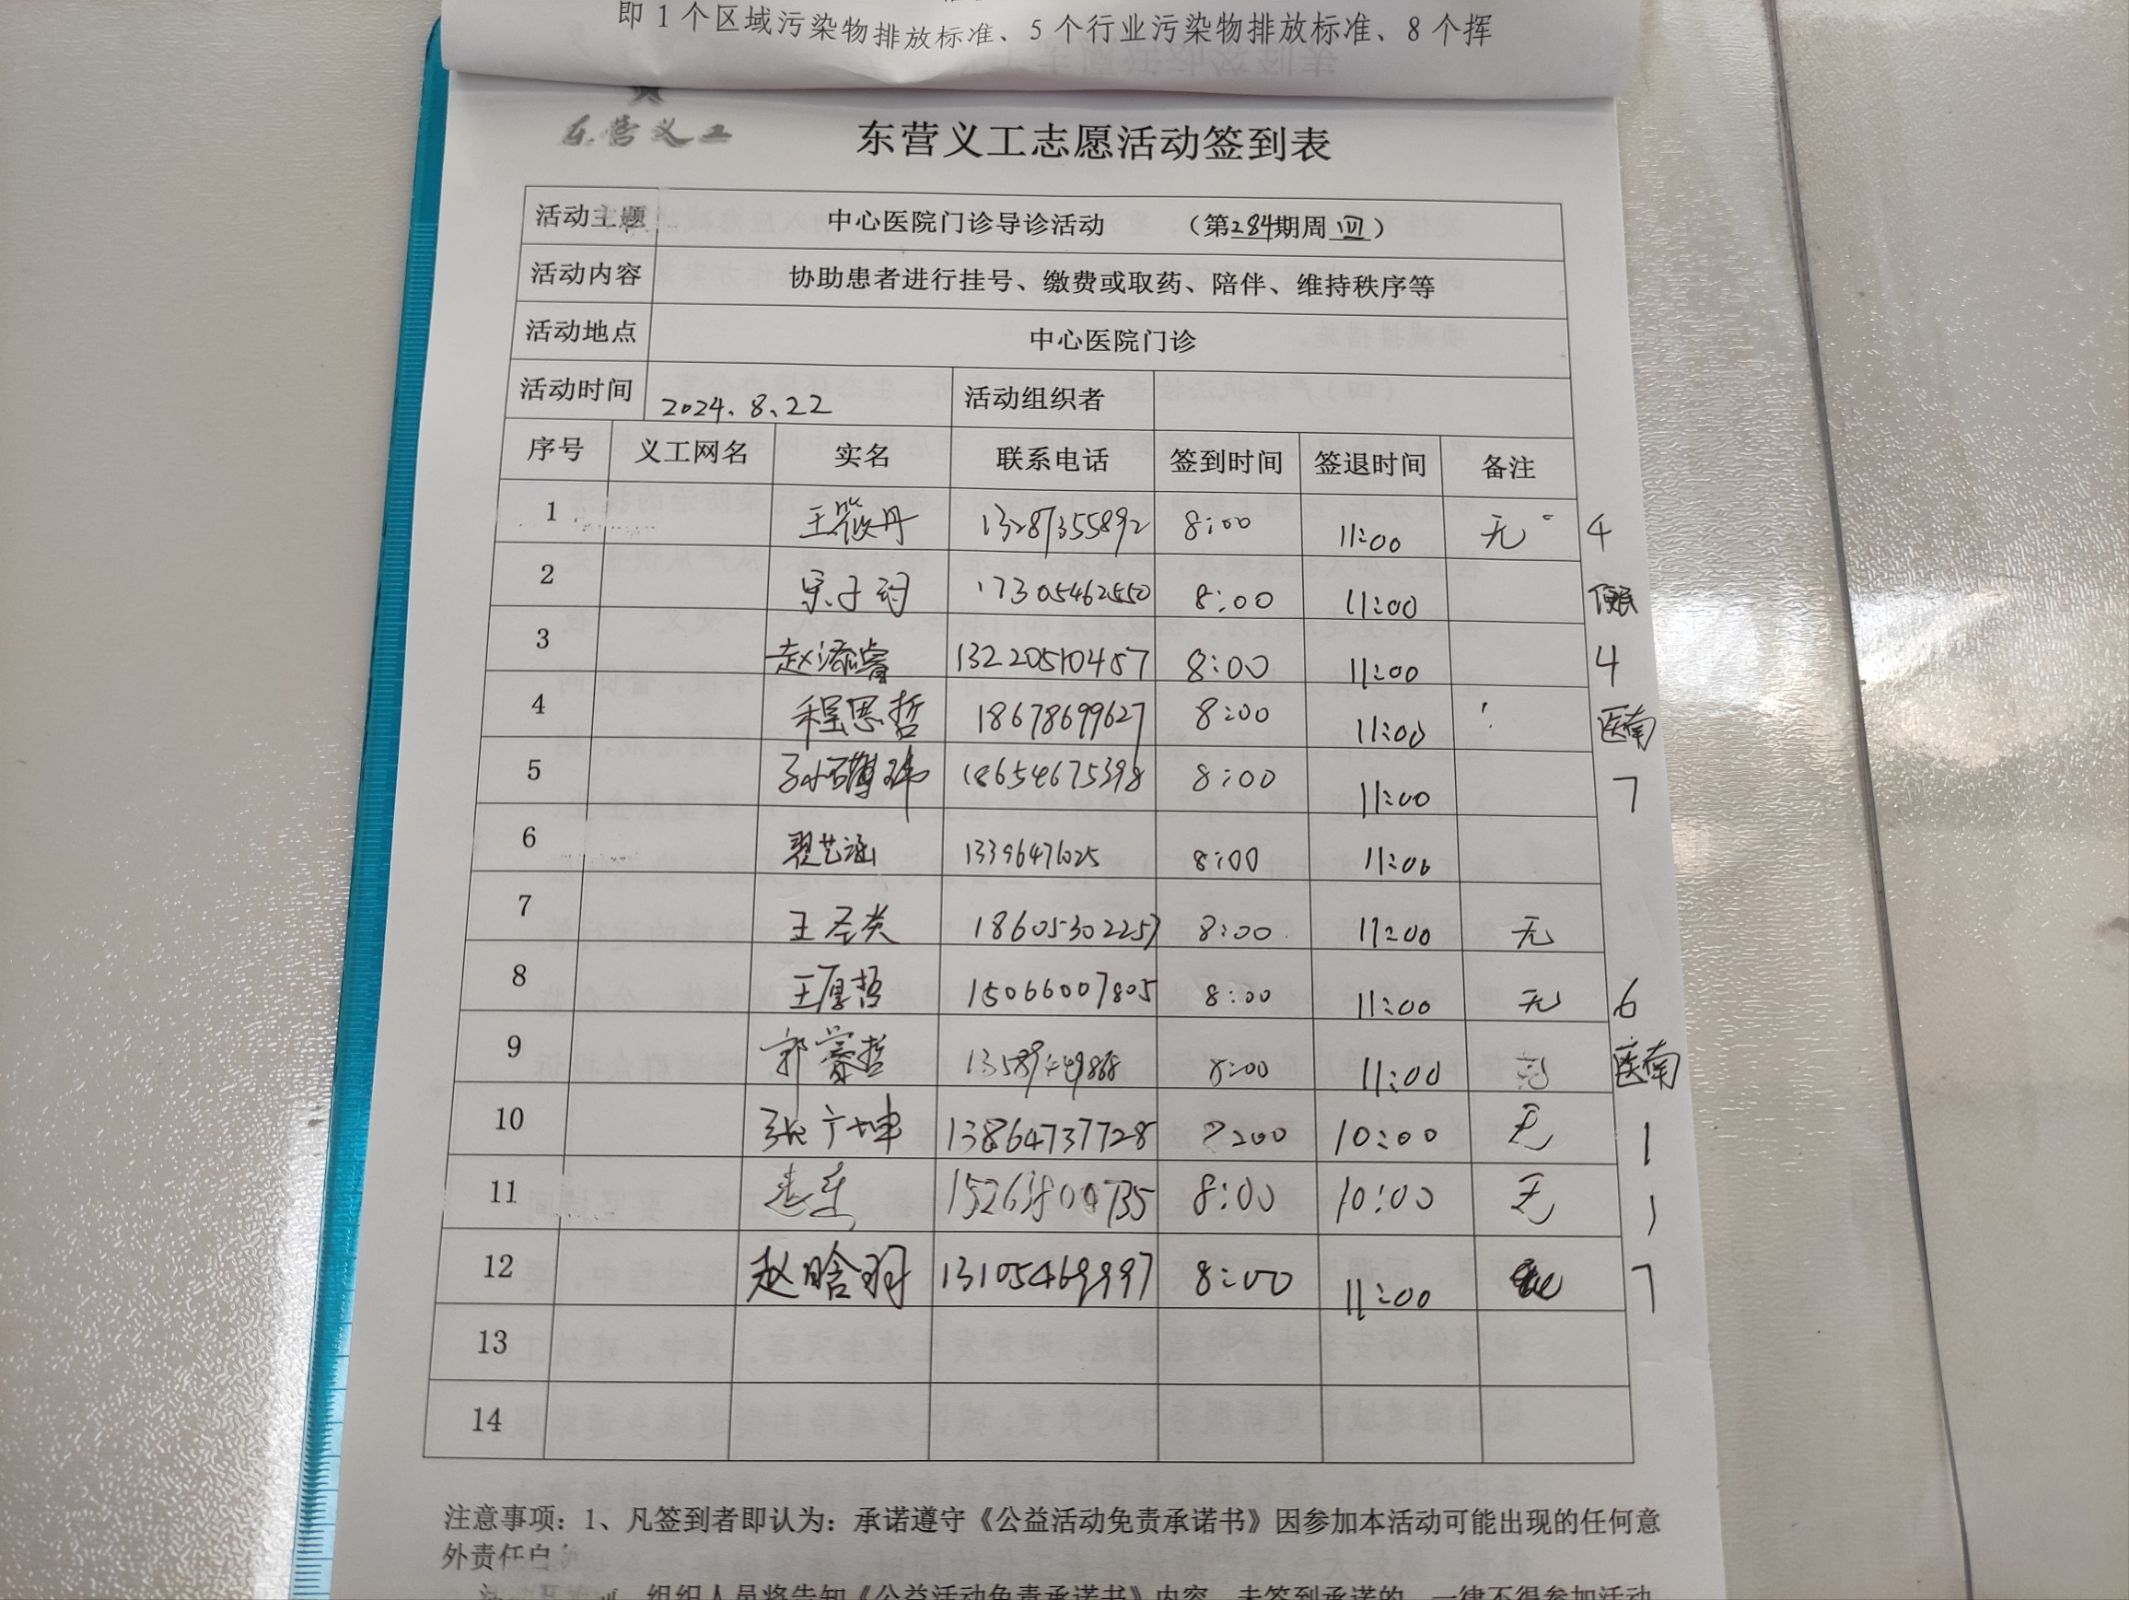 即1个区域污染物排放标准、5个行业污染物排放标准、8个挥
东营义工
东营义工志愿活动签到表
活动主题 中心医院门诊导诊活动 （第284期周四）
活动内容 协助患者进行挂号、缴费或取药、陪伴、维持秩序等
活动地点 中心医院门诊
活动时间 2024.8.22 活动组织者
序号 义工网名 实名 联系电话 签到时间 签退时间 备注
1 王筱丹 13287355892 8:00 11:00 无 4
2 17305462550 8:00 11:00 便民
3 赵添睿 13220510457 8:00 11:00 4
4 程思哲 18678699627 8:00 11:00 医南
5 18654675398 8:00 11:00 7
6 翟艺涵 1339647625 8:00 11:00
7 王圣 18605302257 8:00 11:00 无
8 王厚哲 15066007805 8:00 11:00 无 6
9 郭 哲 8:00 11:00 医南
10 张广坤 13864737728 10:00 无 1
11 8:00 10:00 无 1
12 赵晗羽 13105469997 8:00 11:00 7
13
14
注意事项：1、凡签到者即认为：承诺遵守《公益活动免责承诺书》因参加本活动可能出现的任何意
外责任自
组织人员将告知《公益活动免责承诺书》内容，未签到承诺的，一律不得参加活动